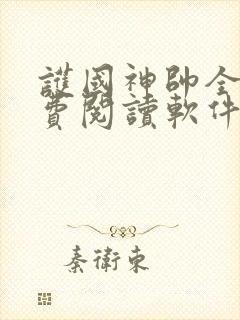 護國神帥全
費閱讀軟件
秦衛東